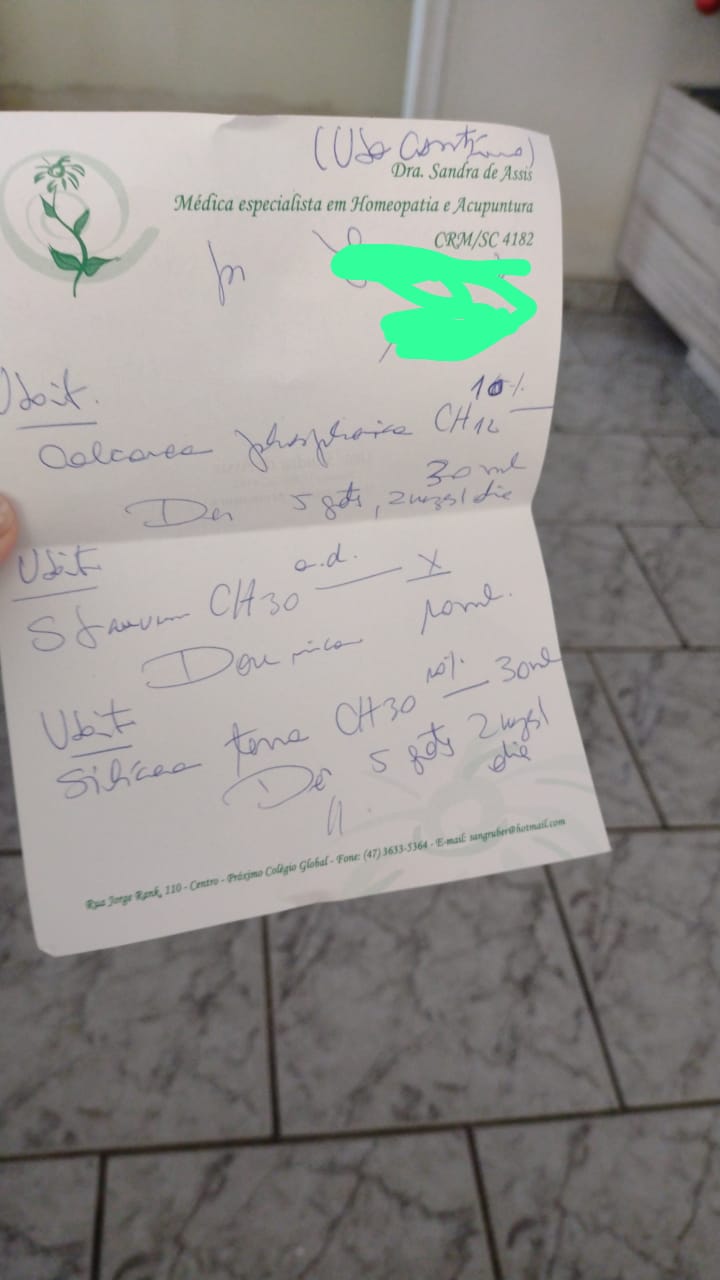 (Uso Contínuo)
Dra. Sandra de Assis
Médica especialista em Homeopatia e Acupuntura
CRM/SC 4182
p/
Us. int. 10%
Calcarea phosphorica CH12
30 ml
Dar 5 gts, 2 vezes/ dia
Us. int. a.d. X
Stannum CH30
10 ml.
Dose única
Us. int. 10% 30 ml
Silicea terra CH30
Dar 5 gts 2 vezes/
dia
Rua Jorge Rank, 110 - Centro - Próximo Colégio Global - Fone: (47) 3633-5364 - E-mail: sangruber@hotmail.com